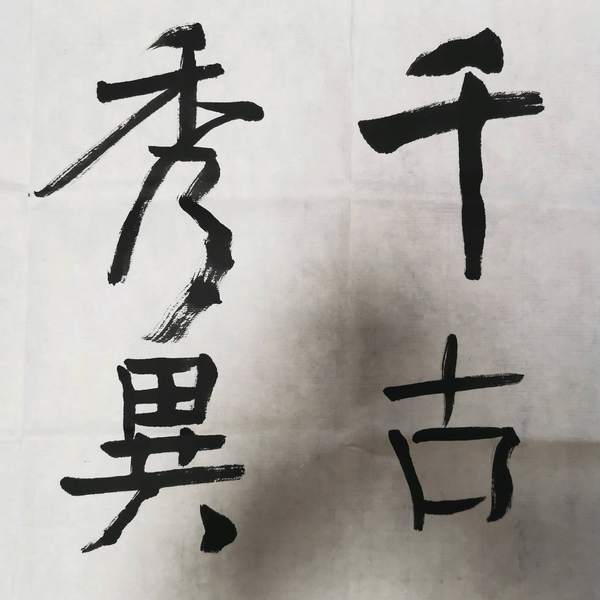 千古
秀異